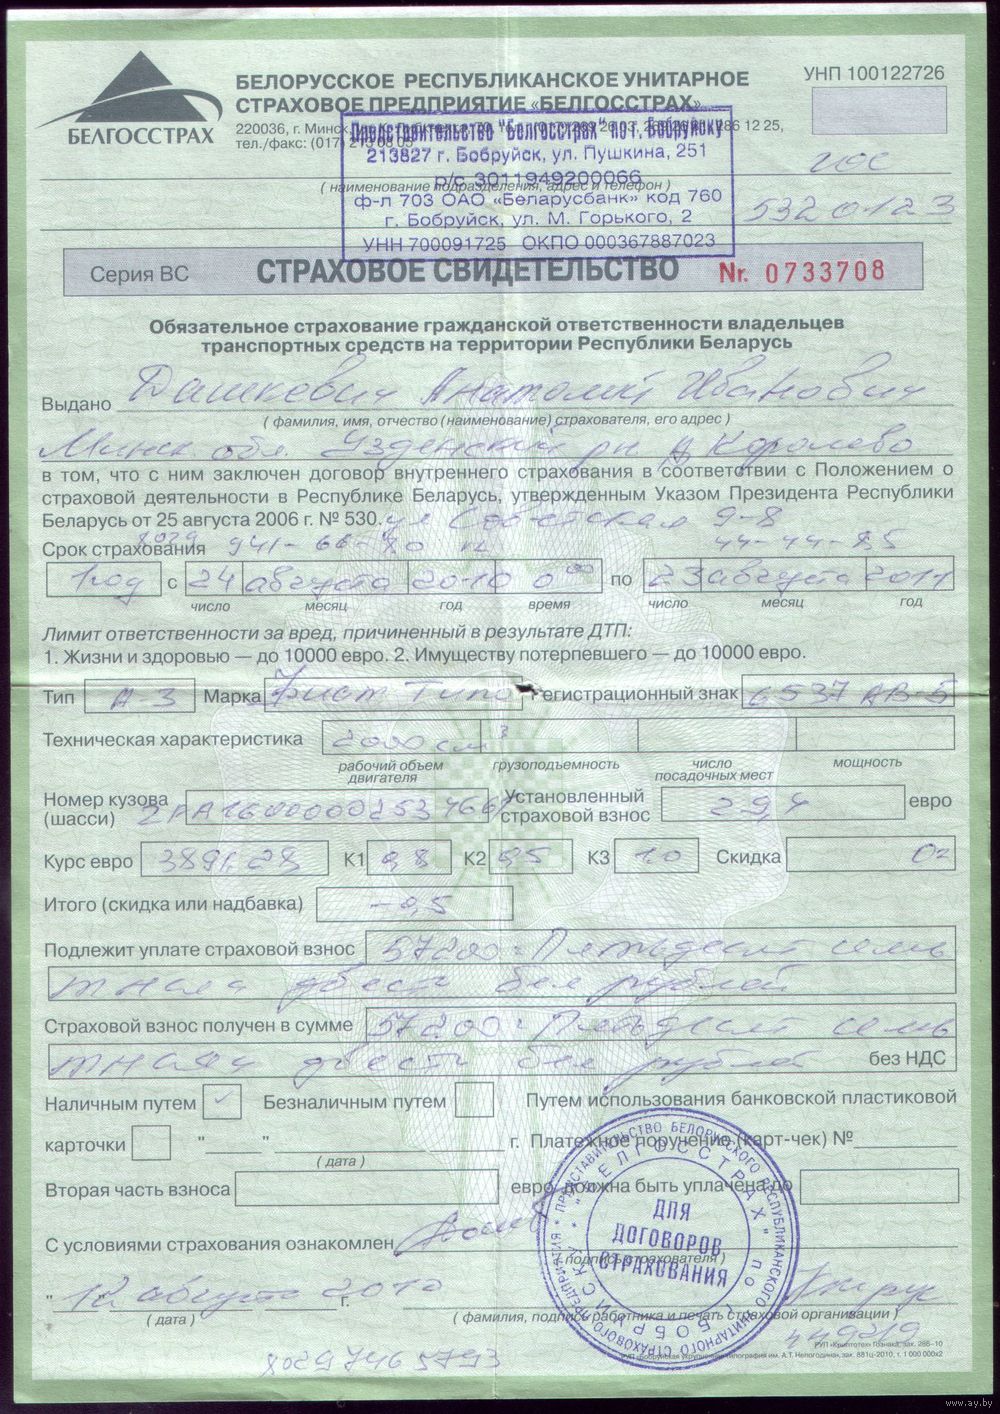 БЕЛГОССТРАХ
БЕЛОРУССКОЕ РЕСПУБЛИКАНСКОЕ УНИТАРНОЕ
СТРАХОВОЕ ПРЕДПРИЯТИЕ «БЕЛГОССТРАХ»
УНП 100122726
220036, г. Минск,
тел./факс: (017) 213 08 05
Представительство "Белгосстрах" по г. Бобруйску
213827 г. Бобруйск, ул. Пушкина, 251
р/с 3011949200066
ф-л 703 ОАО «Беларусбанк» код 760
г. Бобруйск, ул. М. Горького, 2
УНН 700091725 ОКПО 000367887023
(наименование подразделения, адрес и телефон)
гос
5320123
Серия ВС СТРАХОВОЕ СВИДЕТЕЛЬСТВО Nr. 0733708
Обязательное страхование гражданской ответственности владельцев
транспортных средств на территории Республики Беларусь
Выдано Дашкевич Анатолий Иванович
( фамилия, имя, отчество (наименование) страхователя, его адрес )
Минск. обл. Узденский рн д Королево
в том, что с ним заключен договор внутреннего страхования в соответствии с Положением о
страховой деятельности в Республике Беларусь, утвержденным Указом Президента Республики
Беларусь от 25 августа 2006 г. № 530. ул Советская 9-8
Срок страхования 8029 941-66-80 44-44-85
1 год с 24 августа 2010 0 00 по 23 августа 2011
число месяц год время число месяц год
Лимит ответственности за вред, причиненный в результате ДТП:
1. Жизни и здоровью — до 10000 евро. 2. Имуществу потерпевшего — до 10000 евро.
Тип А-3 Марка Фиат Типо Регистрационный знак 6537 АВ-5
Техническая характеристика 2000 см³
рабочий объем двигателя грузоподъемность число посадочных мест мощность
Номер кузова (шасси) Установленный страховой взнос 29,4 евро
Курс евро 3891,28 К1 0,8 К2 0,5 К3 1,0 Скидка
Итого (скидка или надбавка) -0,5
Подлежит уплате страховой взнос 57200: Пятьдесят семь
тысяч двести бел рублей
Страховой взнос получен в сумме 57200: Пятьдесят семь
тысяч двести бел рублей без НДС
Наличным путем ✓ Безналичным путем Путем использования банковской пластиковой
карточки " " г. Платежное поручение (карт-чек) №
( дата )
Вторая часть взноса евро, должна быть уплачена до
С условиями страхования ознакомлен
( подпись страхователя )
" 12 " августа 2010 г.
( дата ) (фамилия, подпись работника и печать страховой организации )
ПРЕДСТАВИТЕЛЬСТВО БЕЛОРУССКОГО РЕСПУБЛИКАНСКОГО УНИТАРНОГО СТРАХОВОГО ПРЕДПРИЯТИЯ
"БЕЛГОССТРАХ" ПО Г. БОБРУЙСКУ
ДЛЯ
ДОГОВОРОВ
СТРАХОВАНИЯ
449219
80297465793
РУП «Криптотех» Гознака, зак. 286-10
www.ay.by